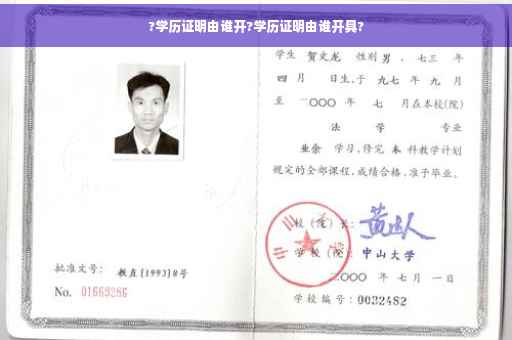 ?学历证明由谁开?学历证明由谁开具?
学生 贺文龙 性别 男，七三 年
四 月 日生，于 九七 年 九 月
至 二〇〇〇 年 七 月在本校(院)
法 学 专业
业余 学习，修完 本 科教学计划
规定的全部课程，成绩合格，准予毕业。
校 (院) 长：
学 校 (院)：中山大学
二〇〇〇 年 七 月 一 日
批准文号：教直[1993]8号
No. 01669286
学校编号：0032482